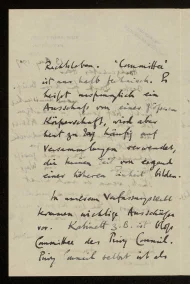 Rechtsleben. "Committee"
ist nur halb technisch. Es
heißt ursprünglich ein
Ausschuß von einer größeren
Körperschaft, wird aber
heut zu Tag häufig auf
Versammlungen verwendet,
die keinen Teil von irgend
einer höheren Einheit bilden.
In unserem Verfassungsrecht
kommen wichtige Ausschüsse
vor. Kabinett z.B. ist bloß
Committee des Privy Council.
Privy Council selbst ist als